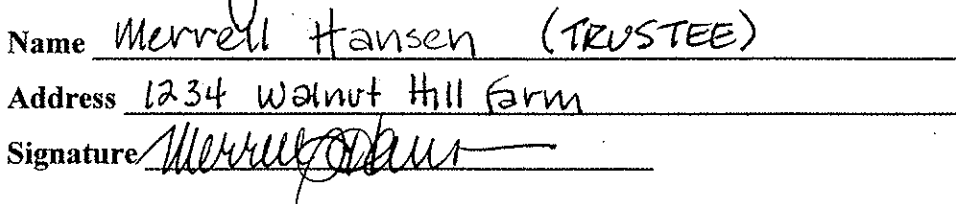 Name Merrell Hansen (TRUSTEE)
Address 1234 Walnut Hill Farm
Signature